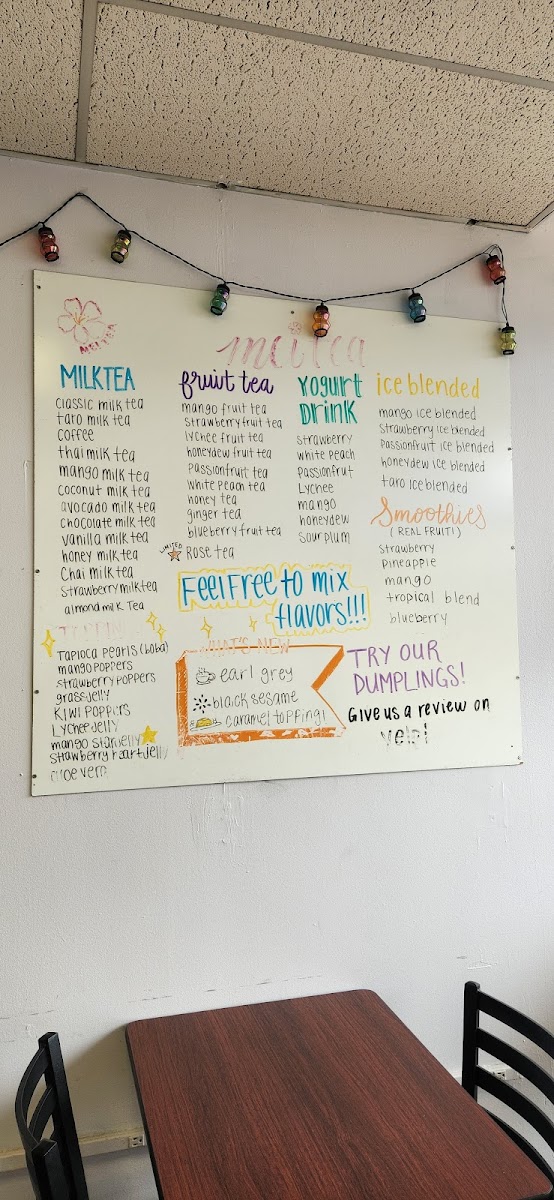 MEITEA
meitea
MILKTEA
classic milk tea
taro milk tea
coffee
thai milk tea
mango milk tea
coconut milk tea
avocado milk tea
chocolate milk tea
vanilla milk tea
honey milk tea
Chai milk tea
strawberry milktea
almond milk Tea
TOPPINGS
TAPIOCA PEARLS (boba)
mango poppers
strawberry poppers
grass jelly
KIWI POPPERS
Lychee jelly
mango starjelly
strawberry heartjelly
aloe vera
fruit tea
mango fruit tea
strawberry fruit tea
lychee fruit tea
honeydew fruit tea
passionfruit tea
white peach tea
honey tea
ginger tea
blueberry fruit tea
LIMITED
Rose tea
Yogurt
Drink
strawberry
white peach
passionfrut
Lychee
mango
honeydew
sour plum
ice blended
mango ice blended
strawberry ice blended
passionfruit ice blended
honeydew ice blended
taro ice blended
Smoothies
(REAL FRUIT!)
strawberry
pineapple
mango
tropical blend
blueberry
Feel Free to mix
flavors!!!
WHAT'S NEW
earl grey
black sesame
caramel topping!
TRY OUR
DUMPLINGS!
Give us a review on
yelp!